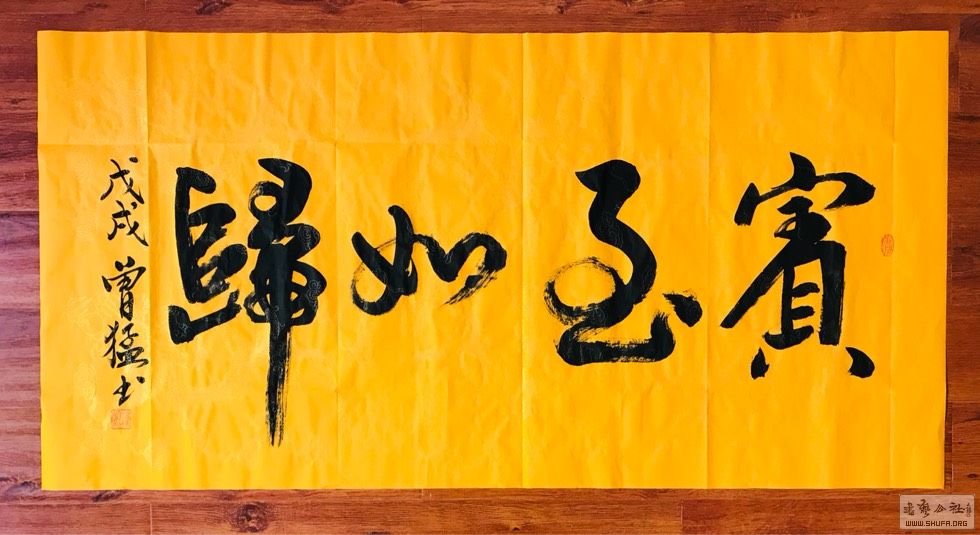 賓至如歸
戊戌 曾猛书
书艺公社
WWW.SHUFA.ORG